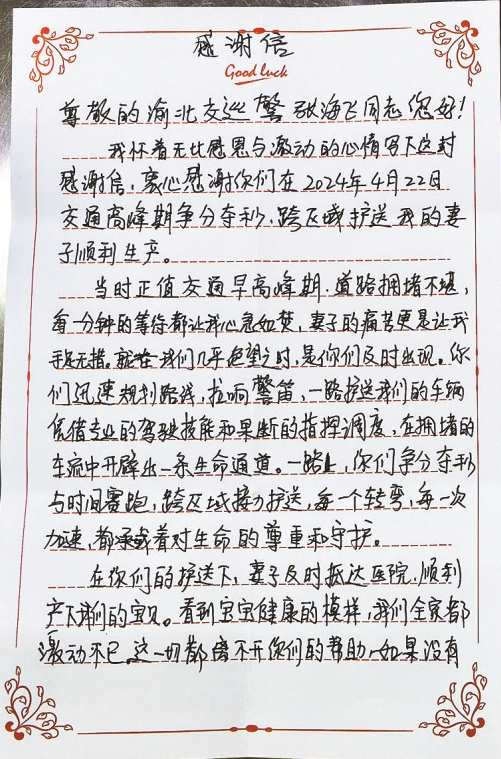 感谢信
Good luck
尊敬的渝北交巡警张海飞同志您好！
我怀着无比感恩与激动的心情写下这封
感谢信，衷心感谢你们在2024年4月22日
交通高峰期争分夺秒，跨区域护送我的妻
子顺利生产。
当时正值交通早高峰期，道路拥堵不堪，
每一分钟的等待都让我心急如焚，妻子的痛苦更是让我
手足无措。就在我们几乎绝望之时，是你们及时出现。你
们迅速规划路线，拉响警笛，一路护送我们的车辆
凭借专业的驾驶技能和果断的指挥调度，在拥堵的
车流中开辟出一条生命通道。一路上，你们争分夺秒
与时间赛跑，跨区域接力护送，每一个转弯，每一次
加速，都承载着对生命的尊重和守护。
在你们的护送下，妻子及时抵达医院，顺利
产下我们的宝贝。看到宝宝健康的模样，我们全家都
激动不已。这一切都离不开你们的帮助，如果没有